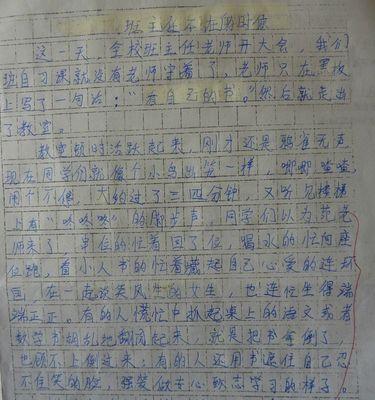 班主任不在的时候
这一天，全校班主任老师开大会，我们
班自习课就没有老师守着了，老师只在黑板
上写了一句话：“看自己的书。”然后就走出
了教室。
教室顿时活跃起来，刚才还是鸦雀无声，
现在同学们就像个小鸟出笼一样，唧唧喳喳，
闹个不停，大约过了三四分钟，又听见楼梯
上有“咚咚咚”的脚步声，同学们以为范老
师来了，串位的忙着回了位，喝水的忙向座
位跑，看小人书的忙着藏起自己心爱的连环
画，在一起谈笑风生的女生，也连忙坐得端
端正正。有的人慌忙中抓起桌上的语文或者
数学书胡乱地翻阅起来，就是把书拿倒了，
也顾不上倒过来；有的人还用书遮住自己忍
不住笑的脸，强装做专心致志学习的样子。